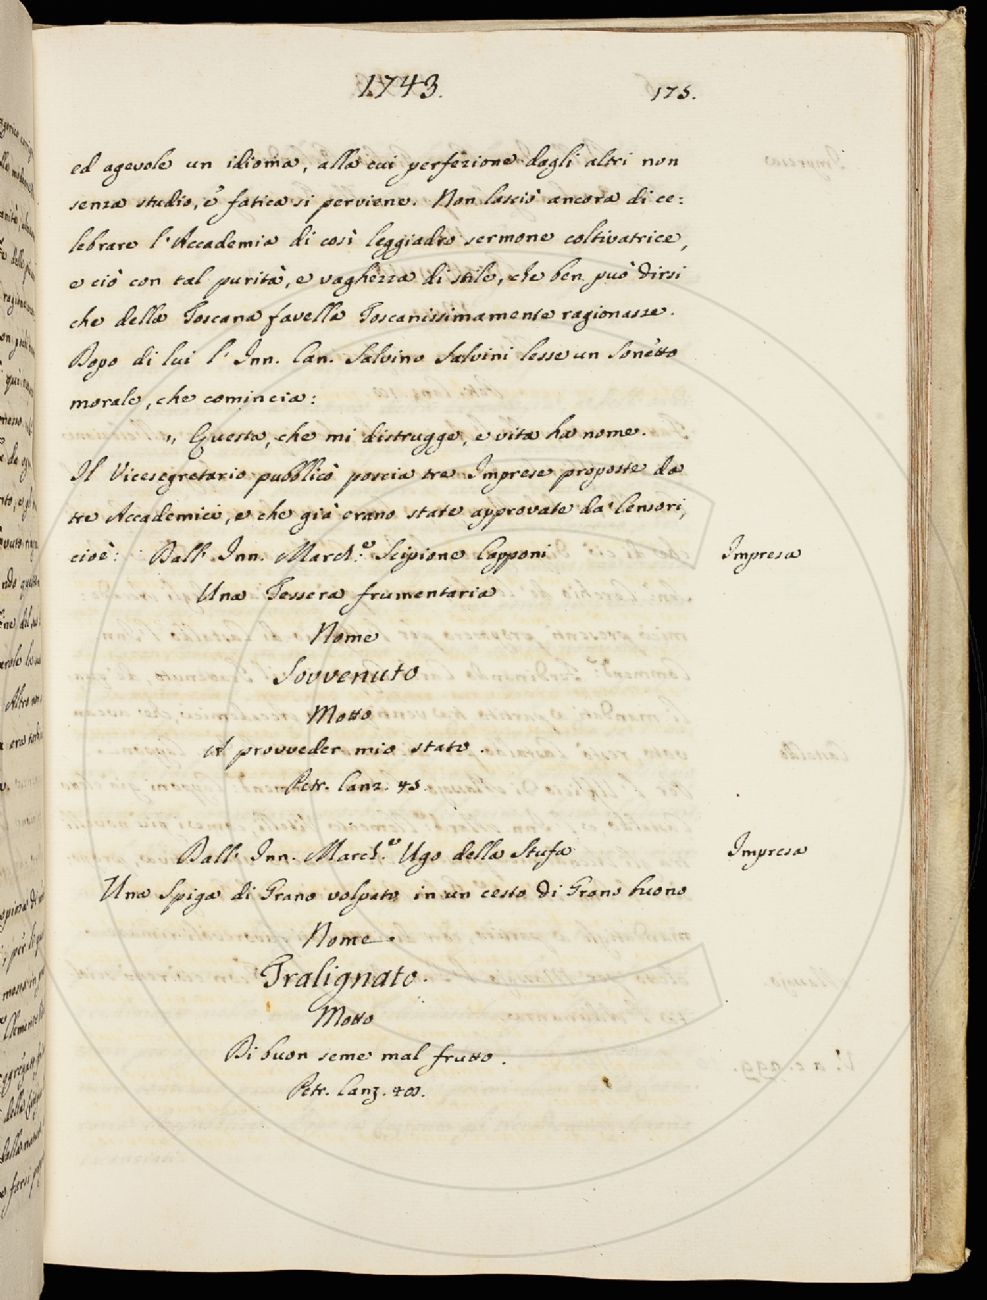 1743.
175.
ed agevole un idioma, alla cui perfezione dagli altri non
senza studio, e fatica si perviene. Non lasciò ancora di ce:
lebrare l'Accademia di così leggiadro sermone coltivatrice,
e ciò con tal purità, e vaghezza di stile, che ben può dirsi
che della Toscana favella Toscanissimamente ragionasse.
Dopo di lui l'Inn. Can. Salvino Salvini lesse un Sonetto
morale, che comincia:
„ Questa, che mi distrugge, e vita ha nome.
Il Vicesegretario pubblicò poscia tre Imprese proposte da
tre Accademici, e che già erano state approvate da' Censori,
cioè: Dall' Inn. March.e Scipione Capponi
Impresa
Una Tessera frumentaria
Nome
Sovvenuto
Motto
A provveder mio stato.
Petr. Canz. 45.
Dall' Inn. March.e Ugo della Stufa
Impresa
Una Spiga di Grano volpato in un cesto di Grano buono
Nome.
Tralignato.
Motto
Di buon seme mal frutto.
Petr. Canz.